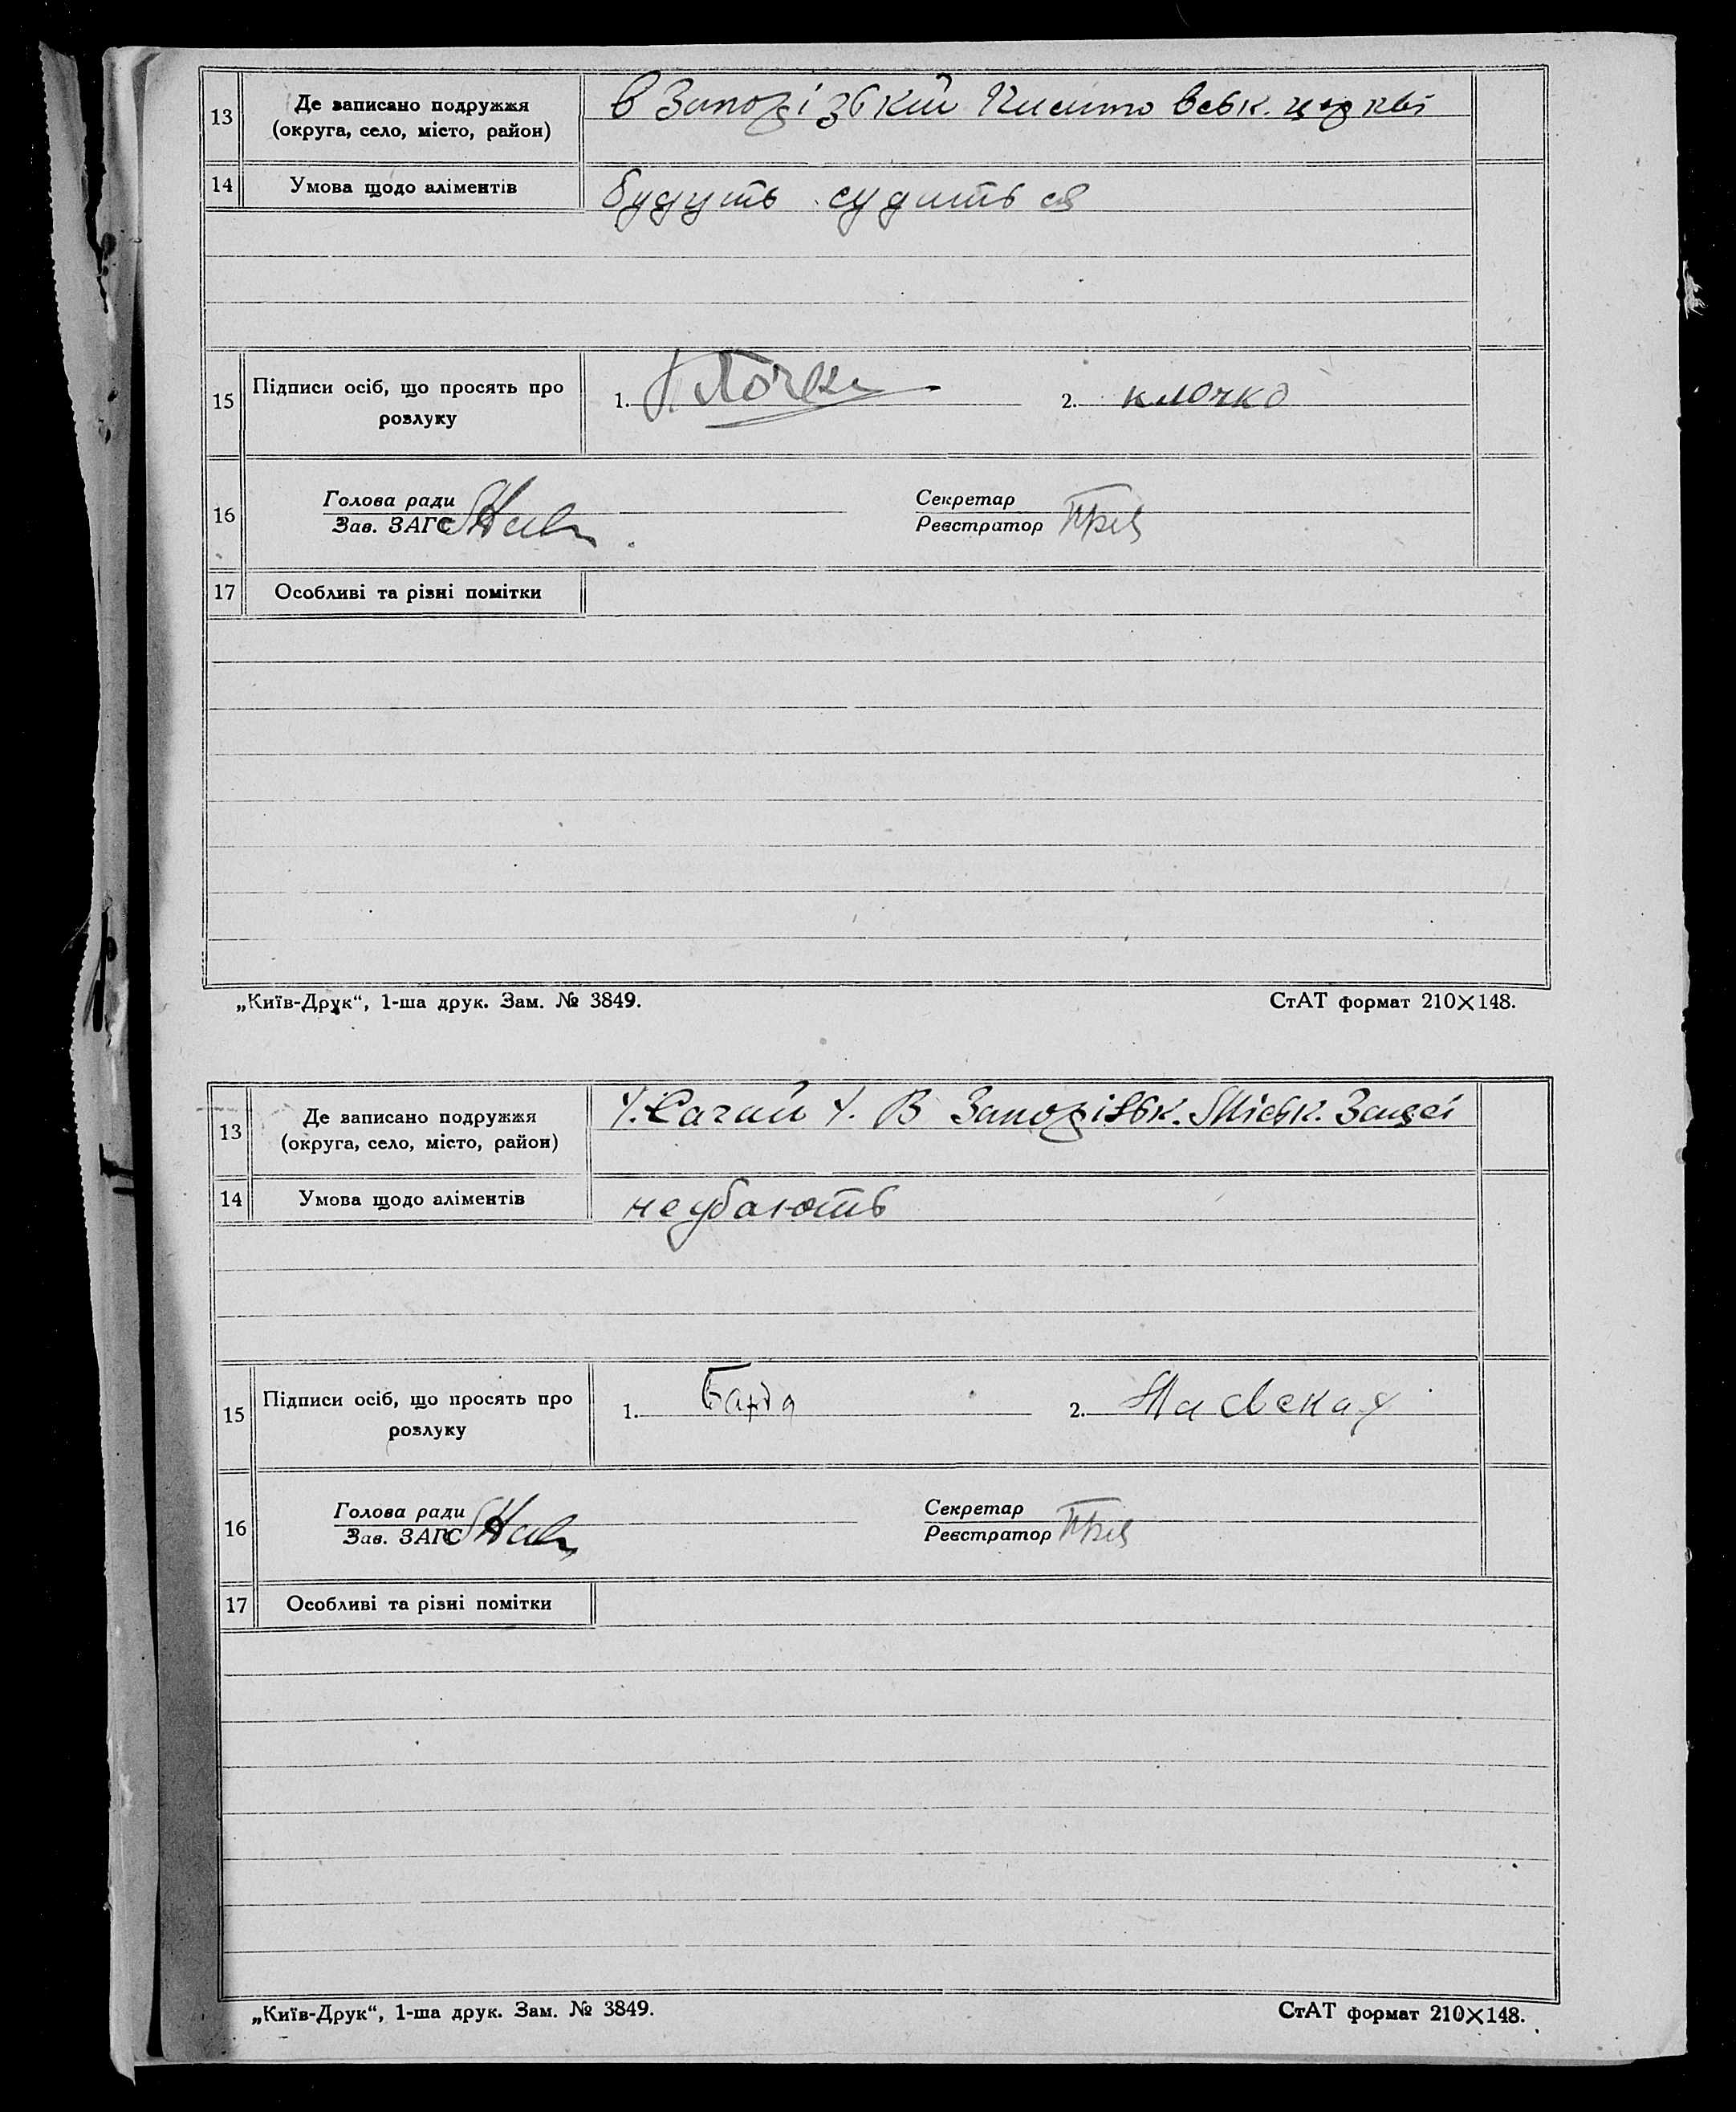 13 Де записано подружжя
(округа, село, місто, район)
в Запоріжській церкві
14 Умова щодо аліментів
будуть судиться
15 Підписи осіб, що просять про
розлуку
1. 2. клочко
16 Голова ради
Зав. ЗАГС
Секретар
Реєстратор
17 Особливі та різні помітки
„Київ-Друк“, 1-ша друк. Зам. № 3849.
СтАТ формат 210×148.
13 Де записано подружжя
(округа, село, місто, район)
В
14 Умова щодо аліментів
15 Підписи осіб, що просять про
розлуку
1. 2.
16 Голова ради
Зав. ЗАГС
Секретар
Реєстратор
17 Особливі та різні помітки
„Київ-Друк“, 1-ша друк. Зам. № 3849.
СтАТ формат 210×148.